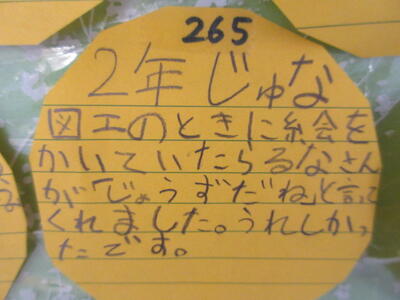 265
2年じゅな
図工のときに絵を
かいていたらるなさん
が「じょうずだね」と言って
くれました。うれしかっ
たです。